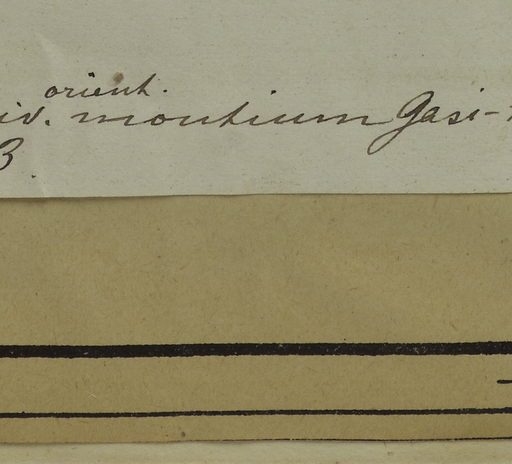 orient.
iv. montium Gasi-
3